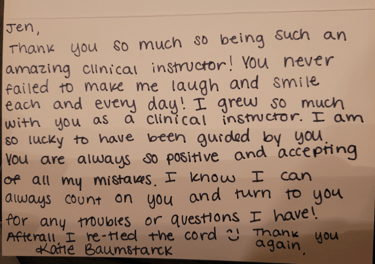 Jen,
Thank you so much so being such an
amazing clinical instructor! You never
failed to make me laugh and smile
each and every day! I grew so much
with you as a clinical instructor. I am
so lucky to have been guided by you.
You are always so positive and accepting
of all my mistakes. I know I can
always count on you and turn to you
for any troubles or questions I have!
Afterall, I re-tied the cord :) Thank you
Katie Baumstarck again.